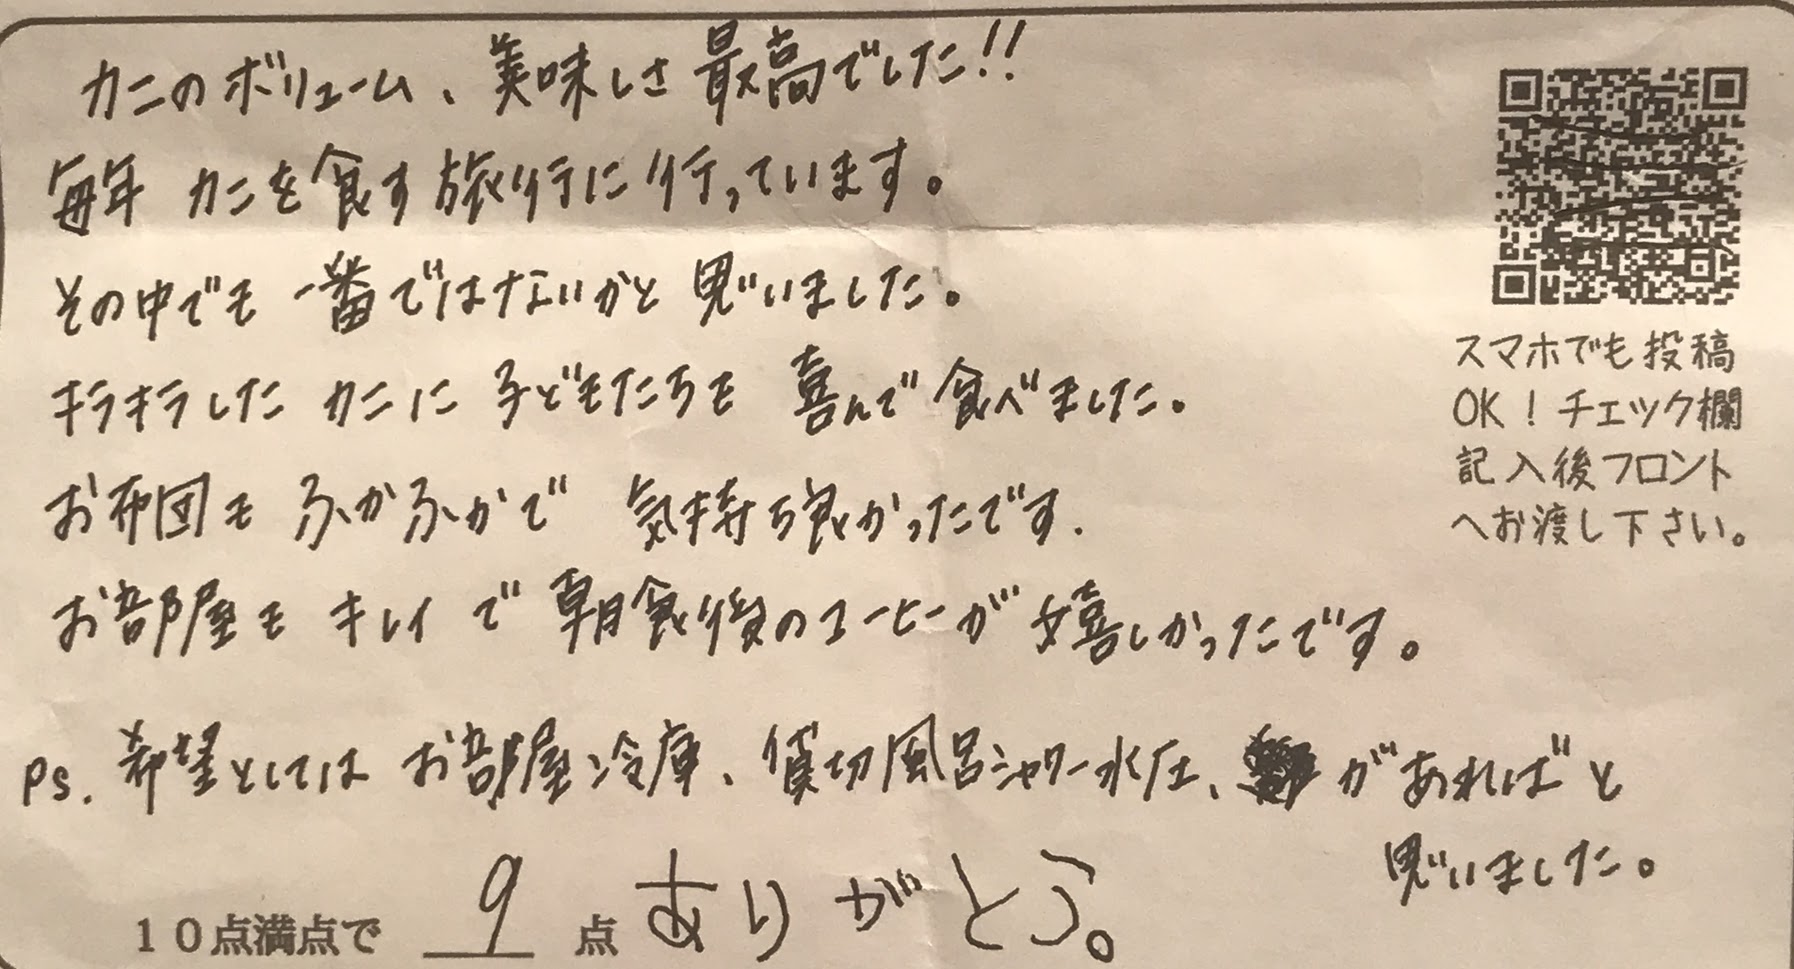 カニのボリューム、美味しさ最高でした!!
毎年 カニを食す旅行に行っています。
その中でも一番ではないかと思いました。
キラキラしたカニに子どもたちも喜んで食べました。
お布団もふかふかで 気持ち良かったです.
お部屋もキレイで朝食後のコーヒーが嬉しかったです。
Ps. 希望としてはお部屋冷庫、貸切風呂シャワー水圧、があればと
思いました。
10点満点で 9 点 ありがとう。
スマホでも投稿
OK!チェック欄
記入後フロント
へお渡し下さい。